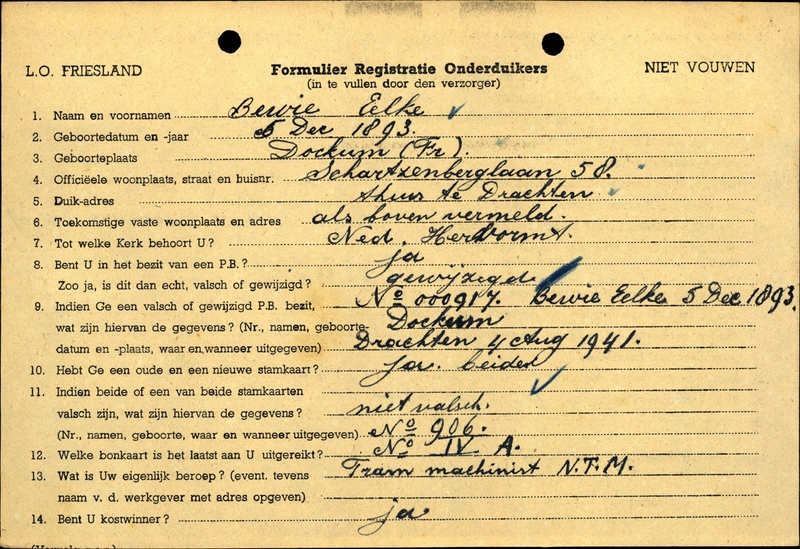 L.O. FRIESLAND
Formulier Registratie Onderduikers
NIET VOUWEN
(in te vullen door den verzorger)
1. Naam en voornamen Bewie Eelke
2. Geboortedatum en -jaar 5 Dec 1893.
3. Geboorteplaats Dockum (Fr).
4. Officiëele woonplaats, straat en huisnr. Schartzenberglaan 58.
5. Duik-adres thuis te Drachten
6. Toekomstige vaste woonplaats en adres als boven vermeld.
7. Tot welke Kerk behoort U? Ned. Hervormt.
8. Bent U in het bezit van een P.B.? ja
Zoo ja, is dit dan echt, valsch of gewijzigd? gewijzigd
9. Indien Ge een valsch of gewijzigd P.B. bezit, No 000917. Bewie Eelke 5 Dec 1893.
wat zijn hiervan de gegevens? (Nr., namen, geboorte- Dockum
datum en -plaats, waar en wanneer uitgegeven) Drachten 4 Aug 1941.
10. Hebt Ge een oude en een nieuwe stamkaart? ja. beiden
11. Indien beide of een van beide stamkaarten
valsch zijn, wat zijn hiervan de gegevens? niet valsch.
(Nr., namen, geboorte, waar en wanneer uitgegeven) No 906.
12. Welke bonkaart is het laatst aan U uitgereikt? No IV A.
13. Wat is Uw eigenlijk beroep? (event. tevens Tram machinist N.T.M.
naam v. d. werkgever met adres opgeven)
14. Bent U kostwinner? ja